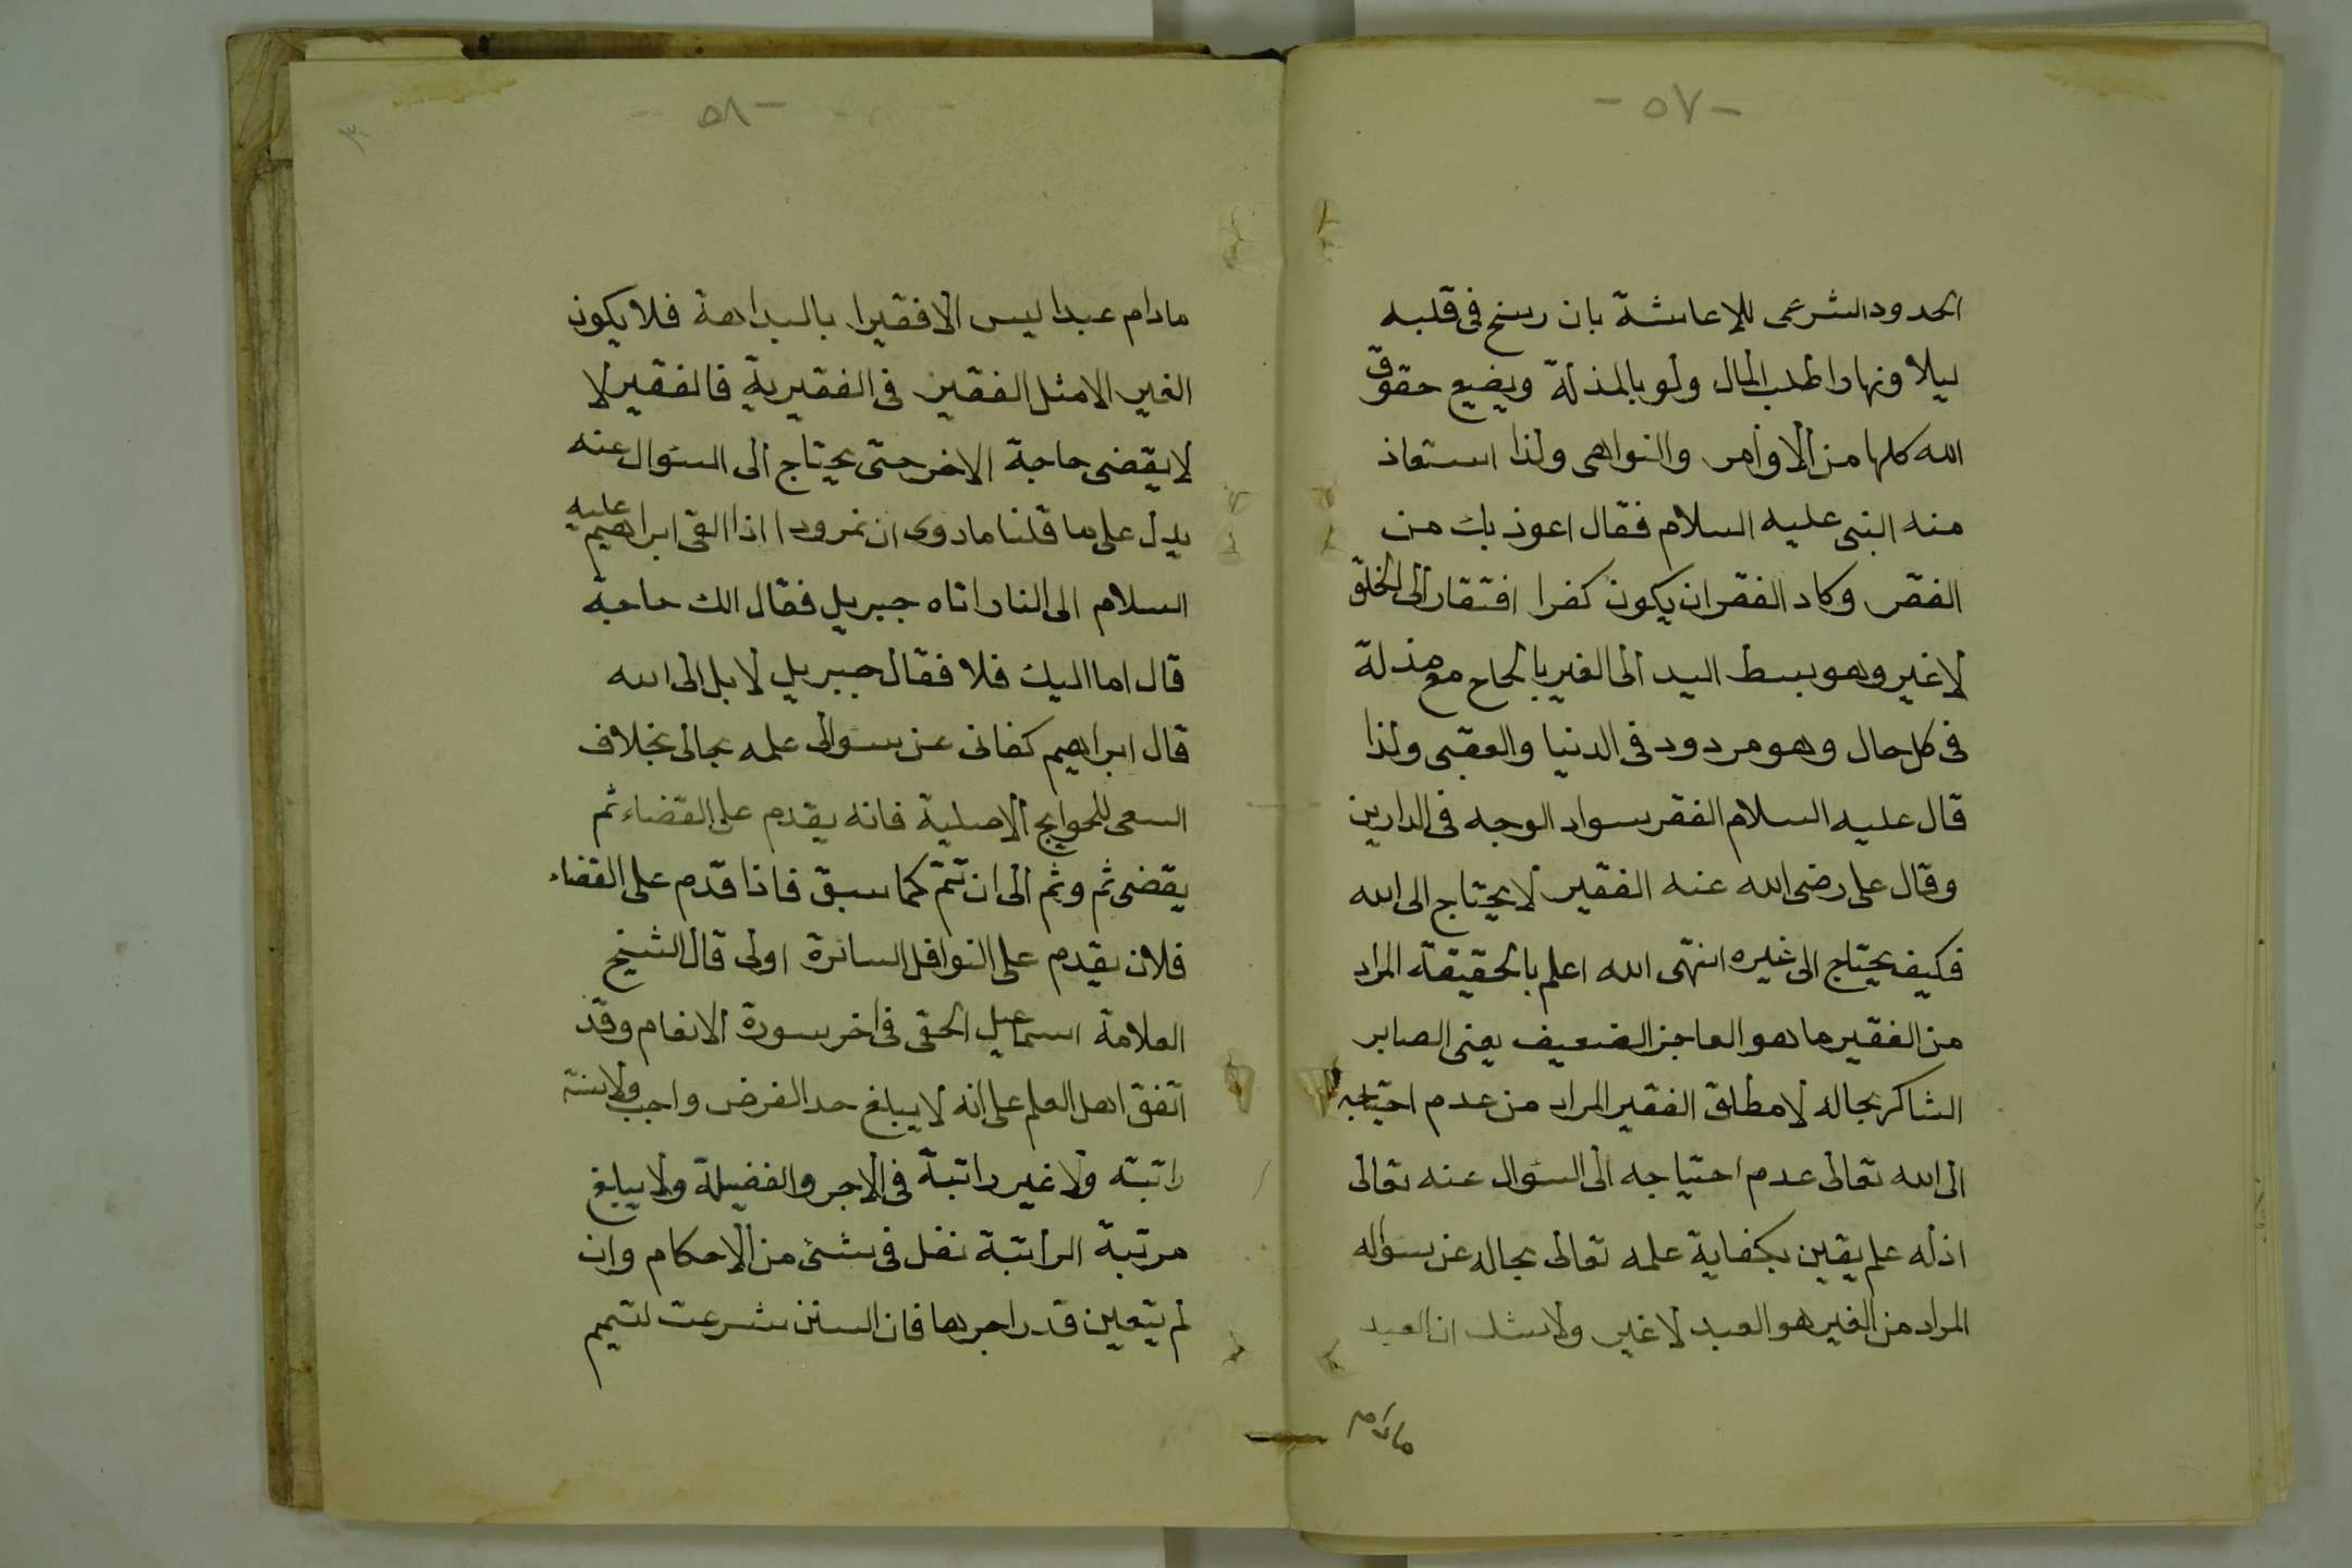 -٥٧-
الحدود الشرعى للإعاشة بان رسخ فى قلبه
ليلا ونهارا طلب المال ولو بالمذلة ويضيع حقوق
الله كلها من الاوامر والنواهى ولذا استعاذ
منه النبى عليه السلام فقال اعوذ بك من
الفقر وكاد الفقر ان يكون كفرا افتقار الى الخلق
لا غير وهو بسط اليد الى الغير بالحاح مع مذلة
فى كل حال وهو مردود فى الدنيا والعقبى ولذا
قال عليه السلام الفقر سواد الوجه فى الدارين
وقال على رضى الله عنه الفقير لا يحتاج الى الله
فكيف يحتاج الى غيره انتهى الله اعلم بالحقيقة المراد
من الفقير ما هو العاجز الضعيف يعنى الصابر
الشاكر بحاله لا مطلق الفقير المراد من عدم احتياجه
الى الله تعالى عدم احتياجه الى السؤال عنه تعالى
اذ له علم يقين بكفاية علمه تعالى بحاله عن سؤاله
المراد من الغير هو العبد لا غير ولا شك ان العبد
مادام
-٥٨-
مادام عبدا ليس الا فقيرا بالبداهة فلا يكون
الغير الا مثل الفقير فى الفقيرية فالفقير لا
لا يقضى حاجة الاخر حتى يحتاج الى السؤال عنه
يدل على ما قلنا ما روى ان نمرودا اذا القى ابراهيم عليه
السلام الى النار اتاه جبريل فقال الك حاجة
قال اما اليك فلا فقال جبريل لا بل الى الله
قال ابراهيم كفانى عن سؤالى علمه بحالى بخلاف
السعى للحوايج الاصلية فانه يقدم على القضاء ثم
يقضى ثم وثم الى ان تتم كما سبق فاذا قدم على القضاء
فلان يقدم على النوافل السائرة اولى قال الشيخ
العلامة اسماعيل الحقى فى اخر سورة الانعام وقد
اتفق اهل العلم على انه لا يبلغ حد الفرض واجب ولا سنة
راتبة ولا غير راتبة فى الاجر والفضيلة ولا يبلغ
مرتبة الراتبة نفل فى شئ من الاحكام وان
لم يتعين قدر اجرها فان السنن شرعت لتتميم